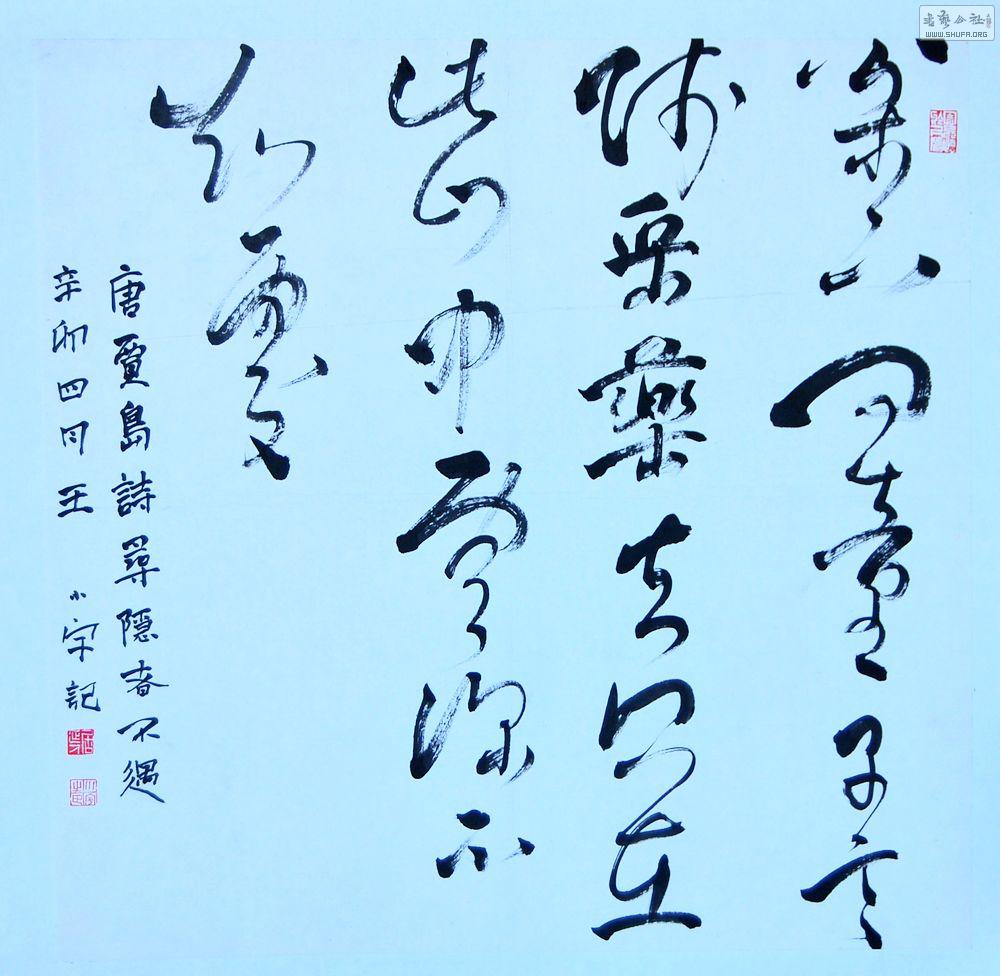 松下問童子言
師采藥去只在
此山中雲深不
知處
唐賈島詩尋隱者不遇
辛卯四月王小記
書藝公社
WWW.SHUFA.ORG